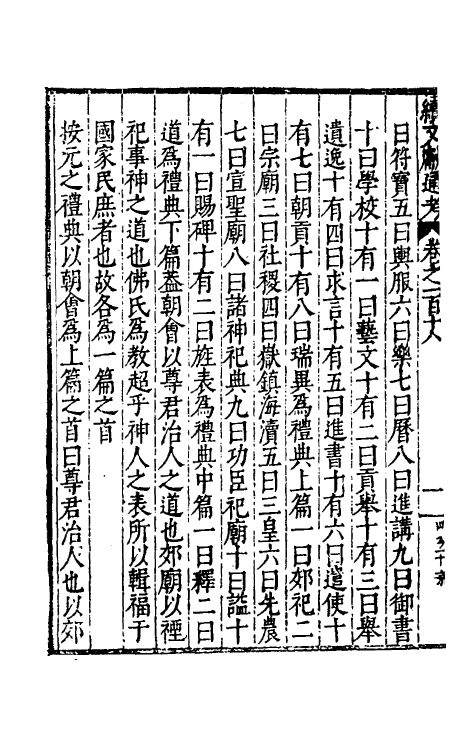 續文獻通考 卷之一百十八
曰符寶五曰輿服六曰樂七曰曆八曰進講九曰御書
十曰學校十有一曰藝文十有二曰貢舉十有三曰舉
遺逸十有四曰求言十有五曰進書十有六曰遣使十
有七曰朝貢十有八曰瑞異爲禮典上篇一曰郊祀二
曰宗廟三曰社稷四曰嶽鎮海瀆五曰三皇六曰先農
七曰宣聖廟八曰諸神祀典九曰功臣祀廟十曰謚十
有一曰賜碑十有二曰旌表爲禮典中篇一曰釋二曰
道爲禮典下篇葢朝會以尊君治人之道也郊廟以禋
祀事神之道也佛氏爲教超乎神人之表所以輯福于
國家民庶者也故各爲一篇之首
按元之禮典以朝會爲上篇之首曰尊君治人也以郊